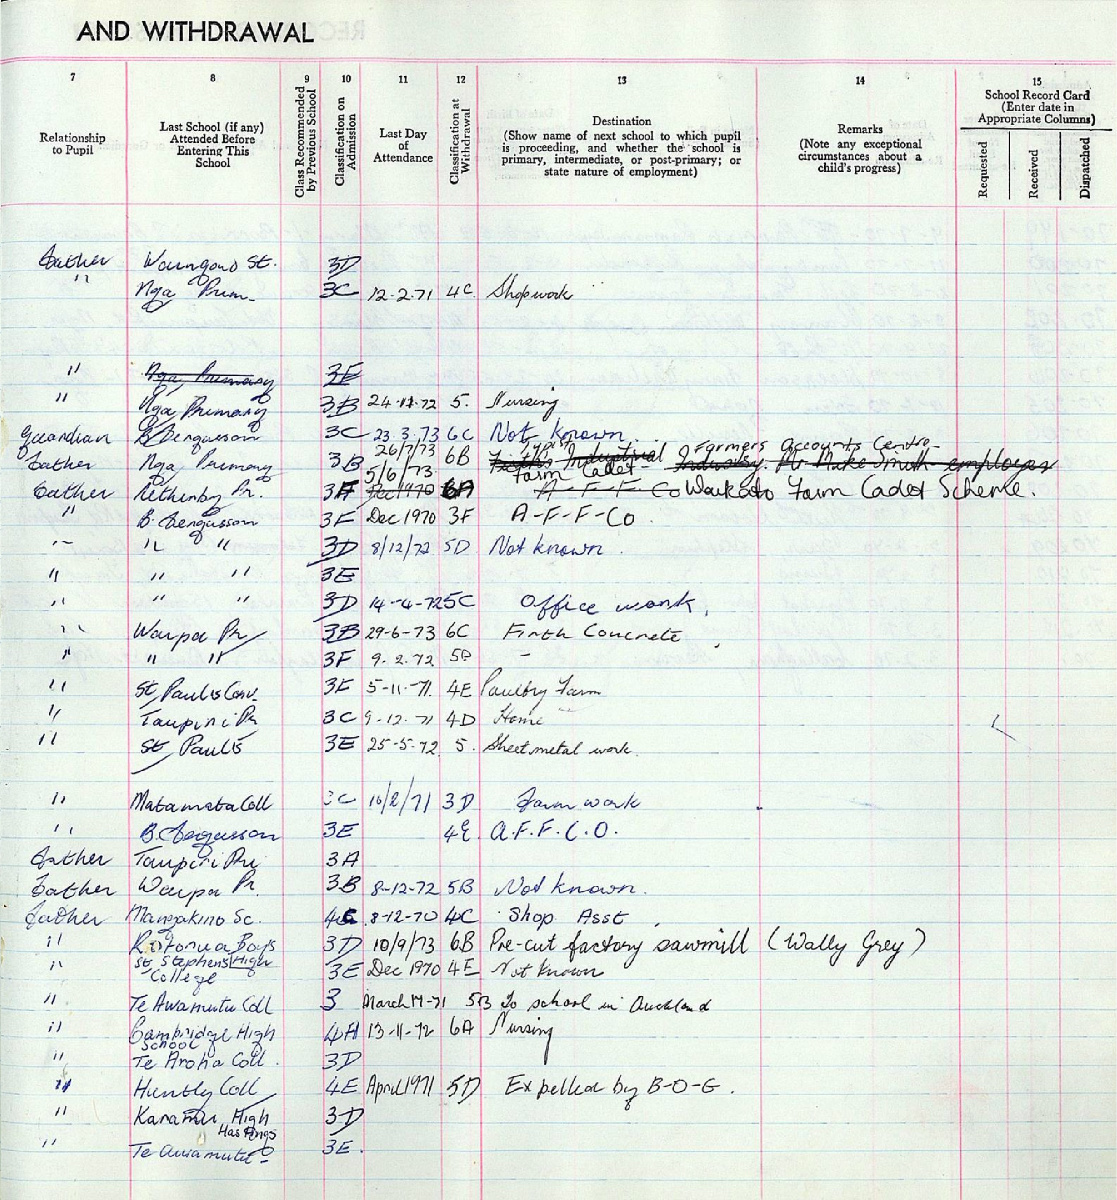 AND WITHDRAWAL
7 8 9 10 11 12 13 14 15
Relationship to Pupil
Last School (if any) Attended Before Entering This School
Class Recommended by Previous School
Classification on Admission
Last Day of Attendance
Classification at Withdrawal
Destination (Show name of next school to which pupil is proceeding, and whether the school is primary, intermediate, or post-primary; or state nature of employment)
Remarks (Note any exceptional circumstances about a child's progress)
School Record Card (Enter date in Appropriate Columns)
Requested Received Dispatched
Father St. 3D
" Nga Prim. 3C 12-2-71 4C Shopwork
" Nga Primary 3E
" Nga Primary 3B 24-11-72 5. Nursing
guardian B. Fergusson 3C 23.3.73 6C Not known.
26/7/73 Typist Farmers Accounts Centre
Father Nga Primary 3B 6B Industrial
5/6/73 Farm Cadet
Father Pr. 3A Dec 1970 6A A-F-F-Co Waikato Farm Cadet Scheme.
" B. Fergusson 3F Dec 1970 3F A-F-F-Co.
" " " 3D 8/12/72 5D Not known.
" " " 3E
" " " 3D 14-4-72 5C Office work.
" Waipa Pr 3B 29-6-73 6C Firth Concrete
" " " 3F 9.2.72 5B -
" St Paul's Conv. 3F 5-11-71 4E Poultry Farm
" Taupiri Pr 3C 9-12-71 4D Home
" St Paul's 3E 25-5-72 5. Sheetmetal work.
" Matamata Coll 3C 10/2/71 3D Farm work
" B. Fergusson 3E 4E. A.F.F.C.O.
Father Taupiri Pri 3A
Father Waipa Pr. 3B 8-12-72 5B Not known.
Father Mangakino Sc. 8-12-70 4C Shop Asst.
" Rotorua Boys High 3D 10/9/73 6B Pre-cut factory sawmill (Wally Grey)
" St Stephens College 3E Dec 1970 4E Not known
" Te Awamutu Coll 3 March 71 5B To school in Auckland
" Cambridge High School 4A 13-11-72 6A Nursing
" Te Aroha Coll. 3D
" Huntly Coll 4E April 1971 5D Expelled by B-O-G.
" Karamu High Hastings 3D
" Te Awamutu 3E.